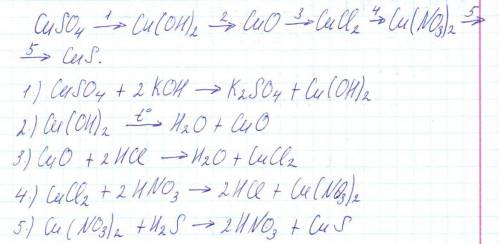 CuSO₄ —1→ Cu(OH)₂ —2→ CuO —3→ CuCl₂ —4→ Cu(NO₃)₂ —5→
—5→ CuS.
1) CuSO₄ + 2KOH → K₂SO₄ + Cu(OH)₂
2) Cu(OH)₂ —t°→ H₂O + CuO
3) CuO + 2HCl → H₂O + CuCl₂
4) CuCl₂ + 2HNO₃ → 2HCl + Cu(NO₃)₂
5) Cu(NO₃)₂ + H₂S → 2HNO₃ + CuS